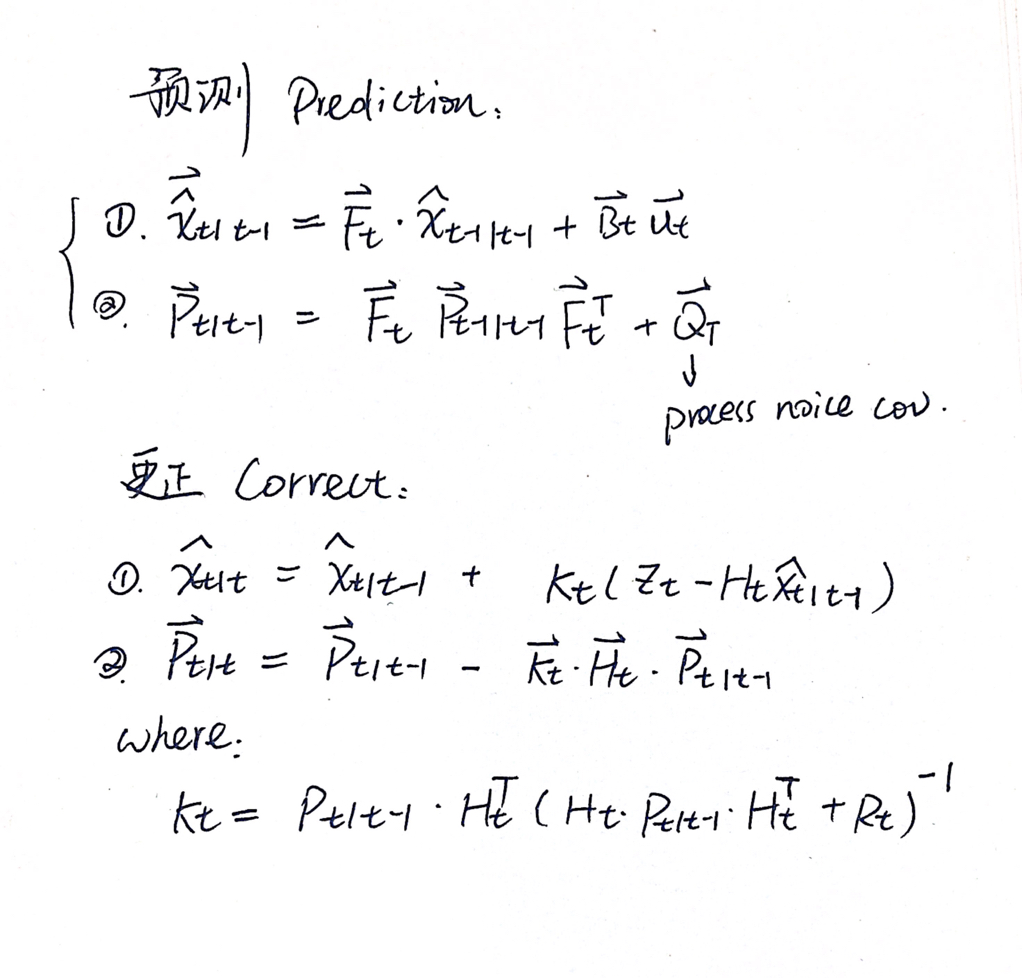 预测 Prediction:
①. $\vec{\hat{x}}_{t|t-1} = \vec{F}_t \cdot \hat{x}_{t-1|t-1} + \vec{B}_t \vec{u}_t$
②. $\vec{P}_{t|t-1} = \vec{F}_t \vec{P}_{t-1|t-1} \vec{F}_t^T + \vec{Q}_T$
↓
process noice cov.
更正 Correct:
①. $\hat{x}_{t|t} = \hat{x}_{t|t-1} + K_t (Z_t - H_t \hat{x}_{t|t-1})$
②. $\vec{P}_{t|t} = \vec{P}_{t|t-1} - \vec{K}_t \cdot \vec{H}_t \cdot \vec{P}_{t|t-1}$
where:
$K_t = P_{t|t-1} \cdot H_t^T (H_t \cdot P_{t|t-1} \cdot H_t^T + R_t)^{-1}$